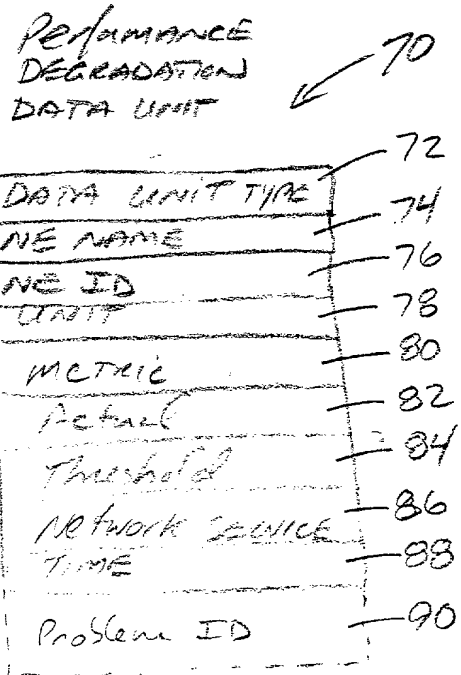 Performance
DEGRADATION
DATA UNIT
70
72
DATA UNIT TYPE
74
NE NAME
76
NE ID
78
UNIT
80
METRIC
82
Actual
84
Threshold
86
Network SERVICE
88
TIME
90
Problem ID